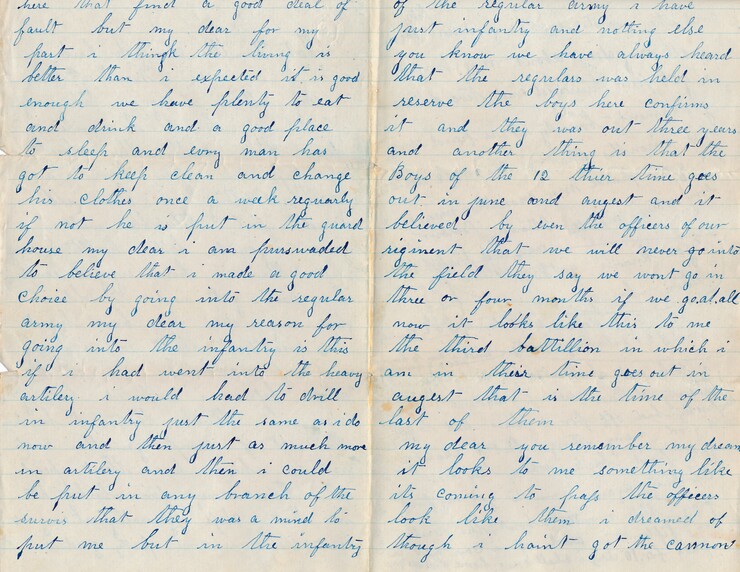 here that find a good deal of
fault but my dear for my
part i thingk the living is
better than i expected it is good
enough we have plenty to eat
and drink and a good place
to sleep and evry man has
got to keep clean and change
his clothes once a week reguarly
if not he is put in the guard
house my dear i am pursuaded
to believe that i made a good
choice by going into the regular
army my dear my reason for
going into the infantry is this
if i had went into the heavy
artilery i would had to drill
in infantry just the same as i do
now and then just as much more
in artilery and then i could
be put in any branch of the
survis that they was a mind to
put me but in the infantry
of the regular army i have
just infantry and nothing else
you know we have always heard
that the regulars was held in
reserve the boys here confirms
it and they was out three years
and another thing is that the
Boys of the 12 thier time goes
out in june and augest and it
believed by even the officers of our
regiment that we will never go into
the field they say we wont go in
three or four months if we go at all
now it looks like this to me
the third battillion in which i
am in their time goes out in
augest that is the time of the
last of them
my dear you remember my dream
it looks to me something like
its coming to pass the officers
look like them i dreamed of
though i haint got the cannon